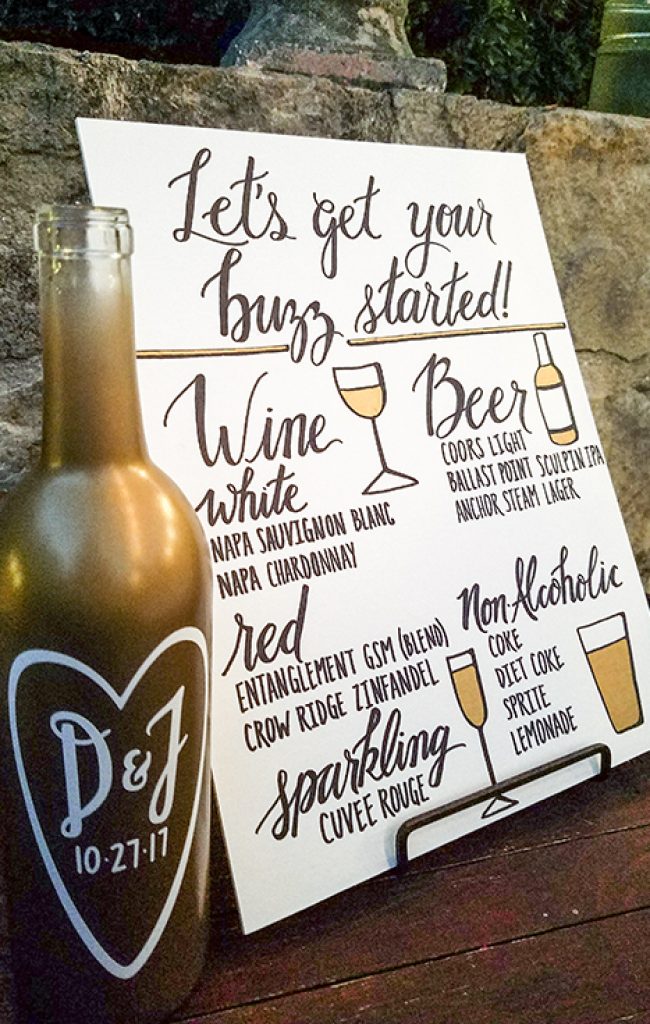 Let's get your
buzz started!
Wine
white
NAPA SAUVIGNON BLANC
NAPA CHARDONNAY
red
ENTANGLEMENT GSM (BLEND)
CROW RIDGE ZINFANDEL
sparkling
CUVEE ROUGE
Beer
COORS LIGHT
BALLAST POINT SCULPIN IPA
ANCHOR STEAM LAGER
Non-Alcoholic
COKE
DIET COKE
SPRITE
LEMONADE
D & J
10·27·17